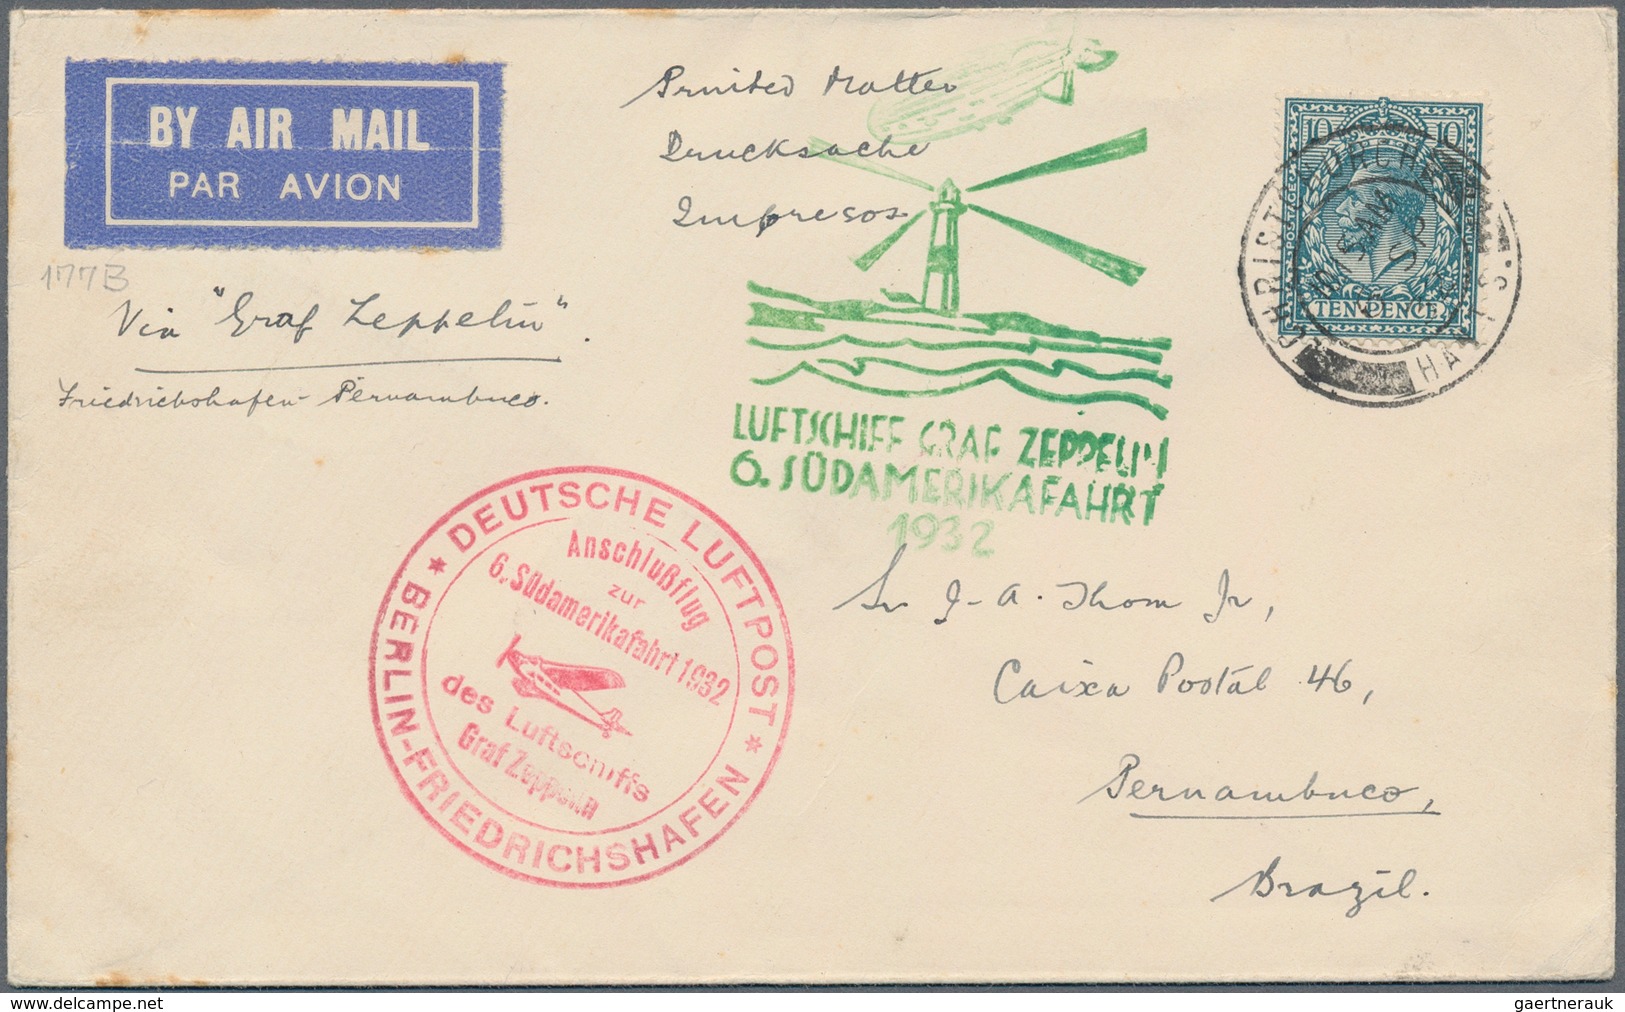 BY AIR MAIL
PAR AVION
177B
Printed Matter
Drucksache
Impresos
Via "Graf Zeppelin".
Friedrichshafen - Pernambuco.
LUFTSCHIFF GRAF ZEPPELIN
6. SÜDAMERIKAFAHRT
1932
10 10
POSTAGE REVENUE
TENPENCE
CHRISTCHURCH
HANTS.
DEUTSCHE LUFTPOST
Anschlußflug
zur
6. Südamerikafahrt 1932
des Luftschiffs
Graf Zeppelin
BERLIN-FRIEDRICHSHAFEN
Sr J-A. Thom Jr,
Caixa Postal 46,
Pernambuco,
Brazil.
gaertnerauk